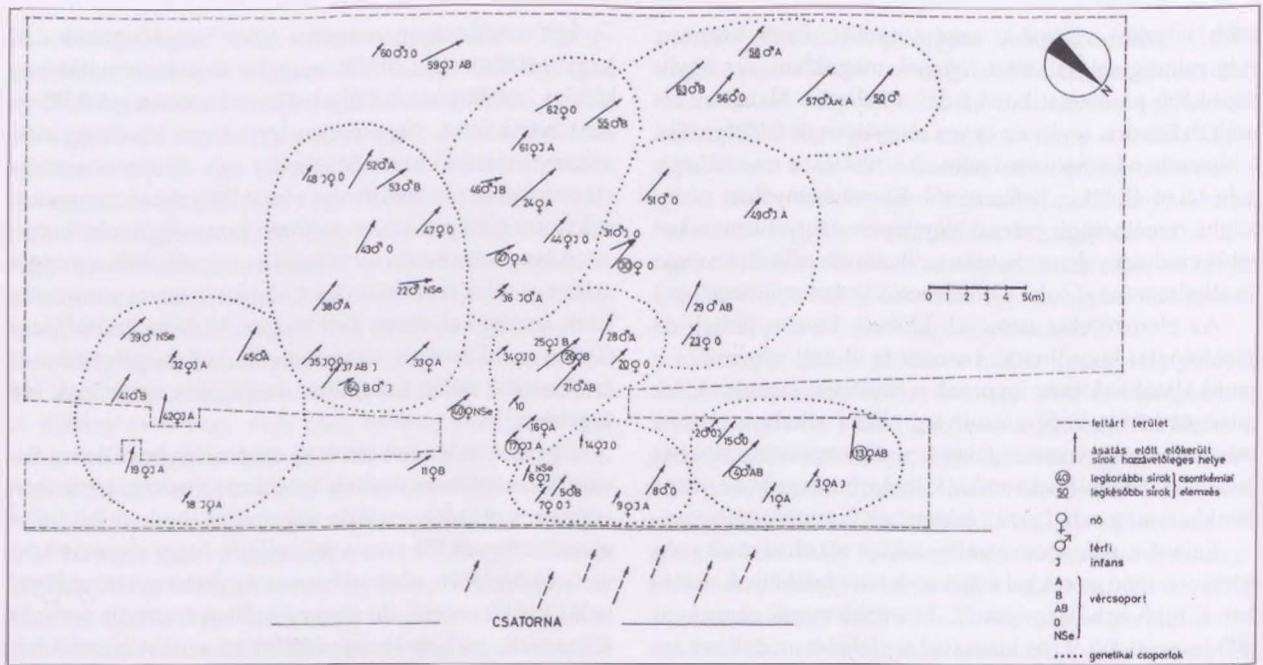 60♂J 0
59♀J AB
58♂A
53♂B
56♂0
57♂AN A
50♂
62♀0
55♂B
61♀J A
52♂A
53♂B
48 J♀ 0
46♂JB
24♀A
51♂0
49♂J A
47♀0
44♀J 0
31♂J 0
43♂0
27♀A
30♀ 0
22♂ NSe
36 J♂A
38♂A
29♂AB
0 1 2 3 4 5(m)
39♂ NSe
45♂A
35♂J
33♀A
34♂J0
25♀J B
26♀B
28♂A
23♀0
20♀0
32♀J A
37 AB J
21♂AB
41♂B
42♀J A
40♀NSe
10
16♀A
17♀J A
14♀J 0
2♂0J
15♂0
13♀AB
19♀J A
11♀B
NSe
6♀J
5♂B
7♀ 0
9♀ J A
8♂0
4♂AB
3♀A J
1♀A
18 J♀A
CSATORNA
feltárt terület
ásatás előtt előkerült
sírok hozzávetőleges helye
60 legkorábbi sírok csontkémiai
50 legkésőbbi sírok elemzés
♀ nő
♂ férfi
J infans
A
B
AB
0
NSe
vércsoport
genetikai csoporfok